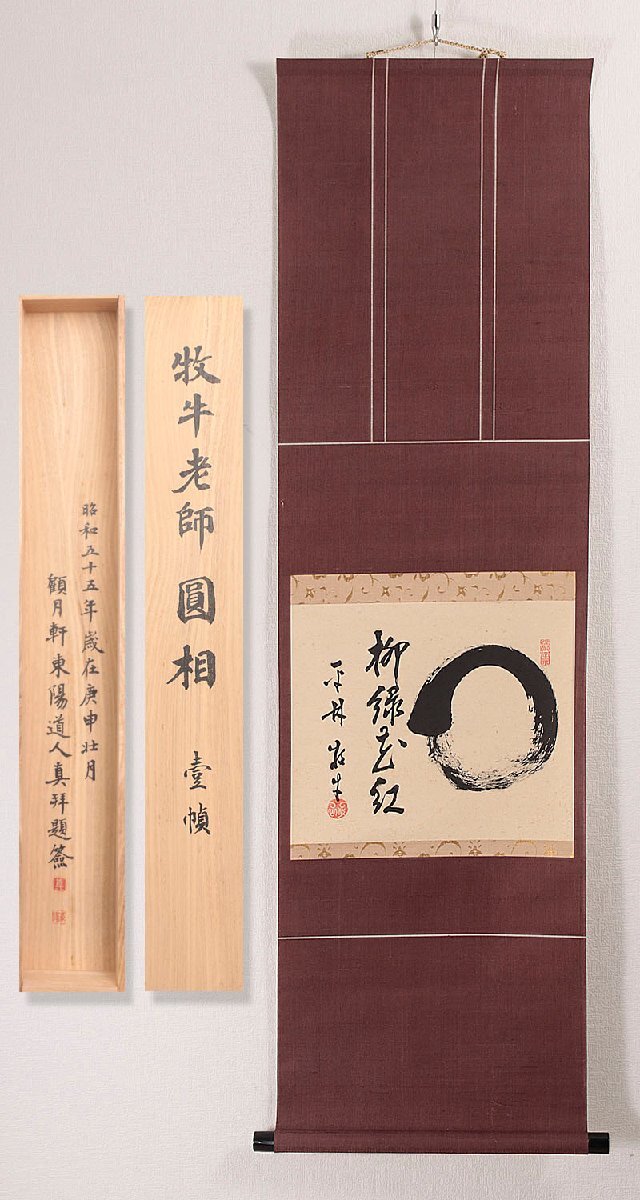 柳緑花紅
平林 牧牛
牧牛老師 圓相 壹幀
昭和五十五年歳在庚申壮月
顧月軒東陽道人真拜題簽